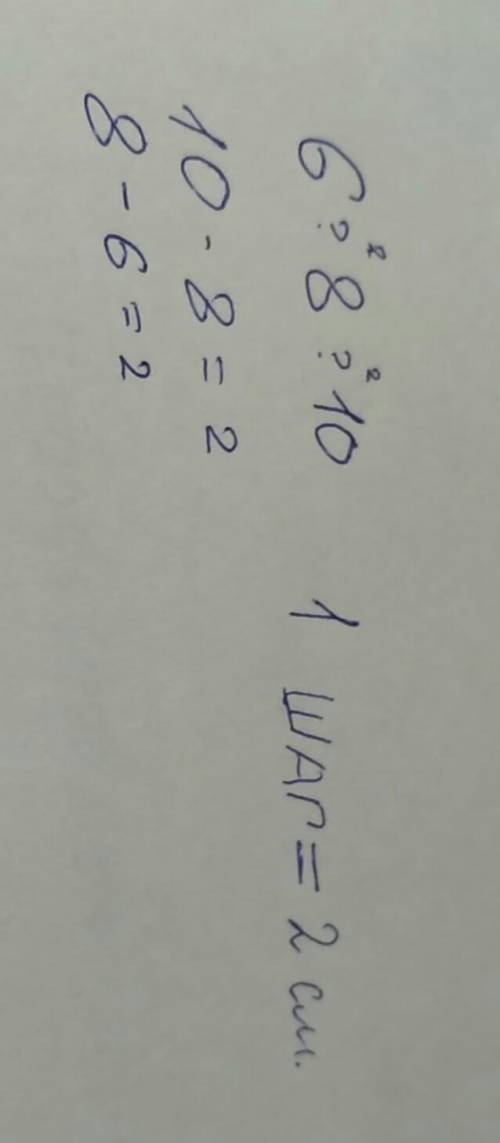 6 ?² 8 ?² 10 1 ШАГ = 2 см.
10 - 8 = 2
8 - 6 = 2